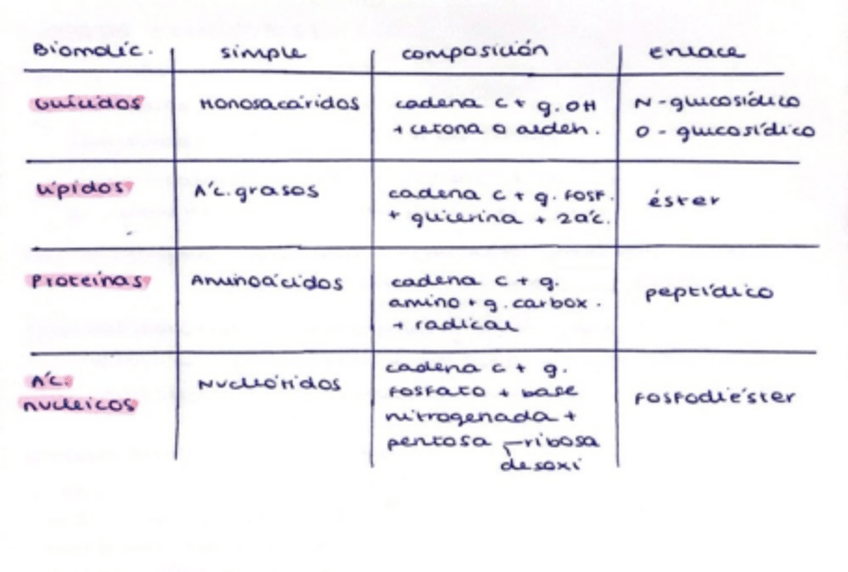 Biomoléc. simple composición enlace
Glúcidos Monosacáridos cadena C + g. OH N-glucosídico
+ cetona o aldeh. O - glucosídico
Lípidos Ác. grasos cadena C + g. fosf. éster
+ glicerina + 2 ác.
Proteínas Aminoácidos cadena C + g. peptídico
amino + g. carbox.
+ radical
Ác. Nucleótidos cadena C + g. fosfodiéster
nucleicos fosfato + base
nitrogenada +
pentosa ribosa
desoxi